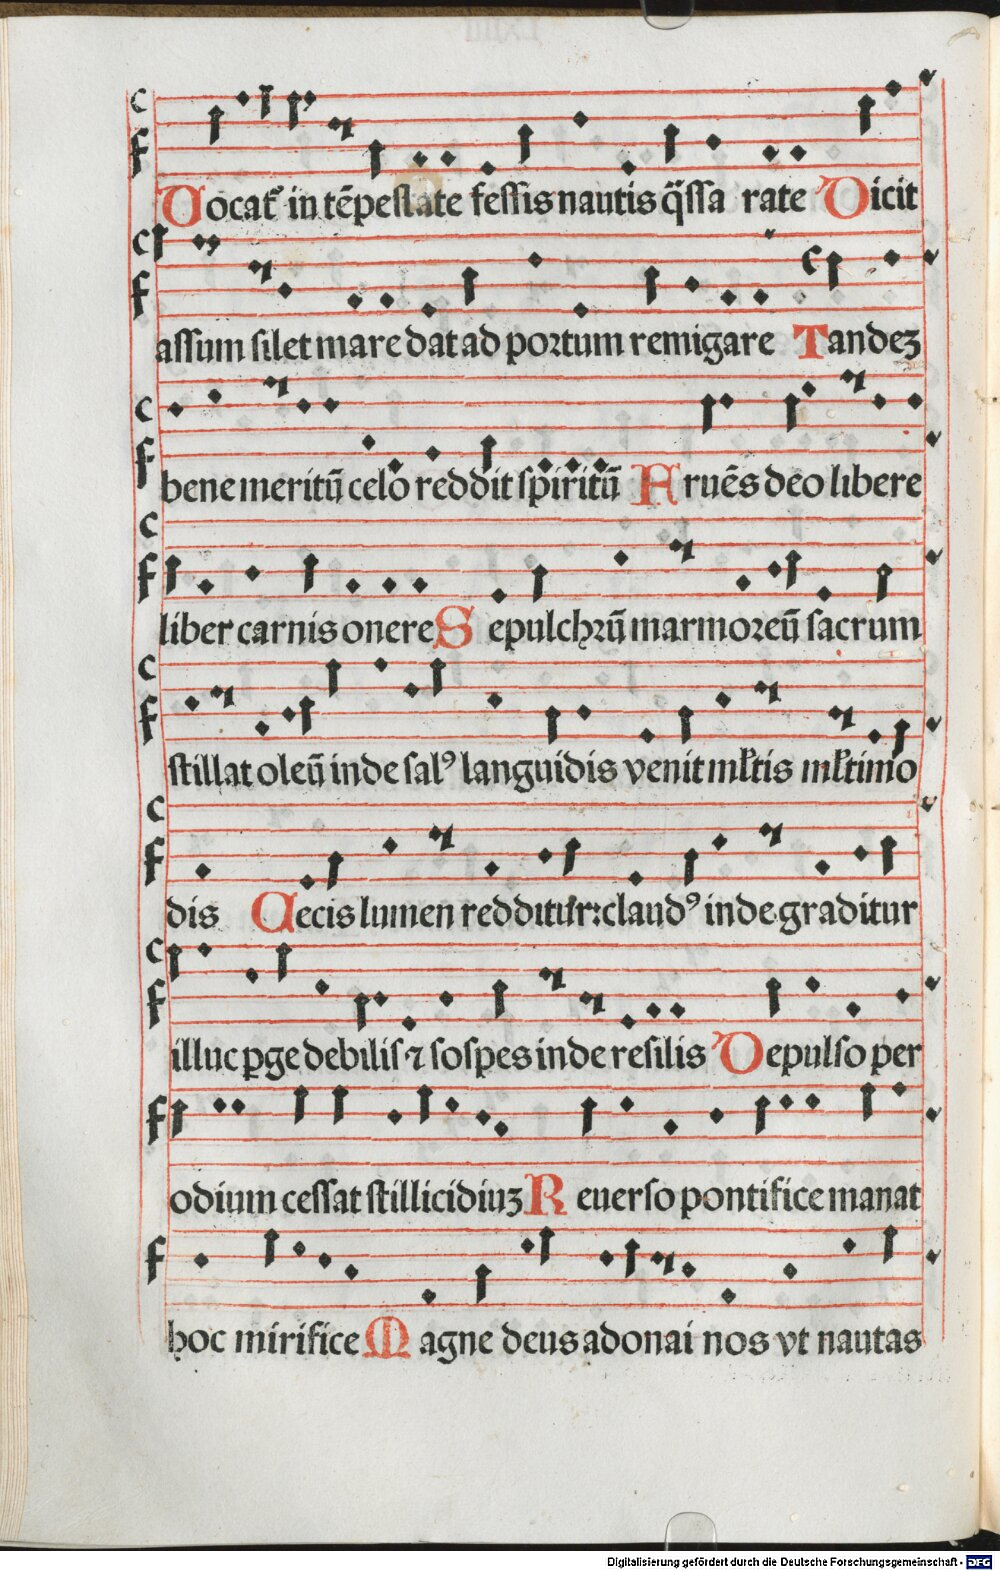 Vocat᷒ in tēpestate fessis nautis q̈ssa rate Dicit
assum silet mare dat ad portum remigare Tandeꝫ
bene meritū celo reddit spiritū Fruēs deo libere
liber carnis onere Sepulchrū marmoreū sacrum
stillat oleū inde salꝰ languidis venit mltis mltimo
dis Cecis lumen redditur: claudꝰ inde graditur
illuc ꝑge debilis ⁊ sospes inde resilis Depulso per
odium cessat stillicidiuꝫ Reuerso pontifice manat
hoc mirifice Magne deus adonai nos vt nautas
Digitalisierung gefördert durch die Deutsche Forschungsgemeinschaft - DFG